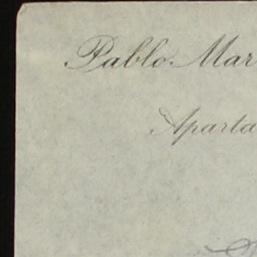 Pablo Mar
Aparta